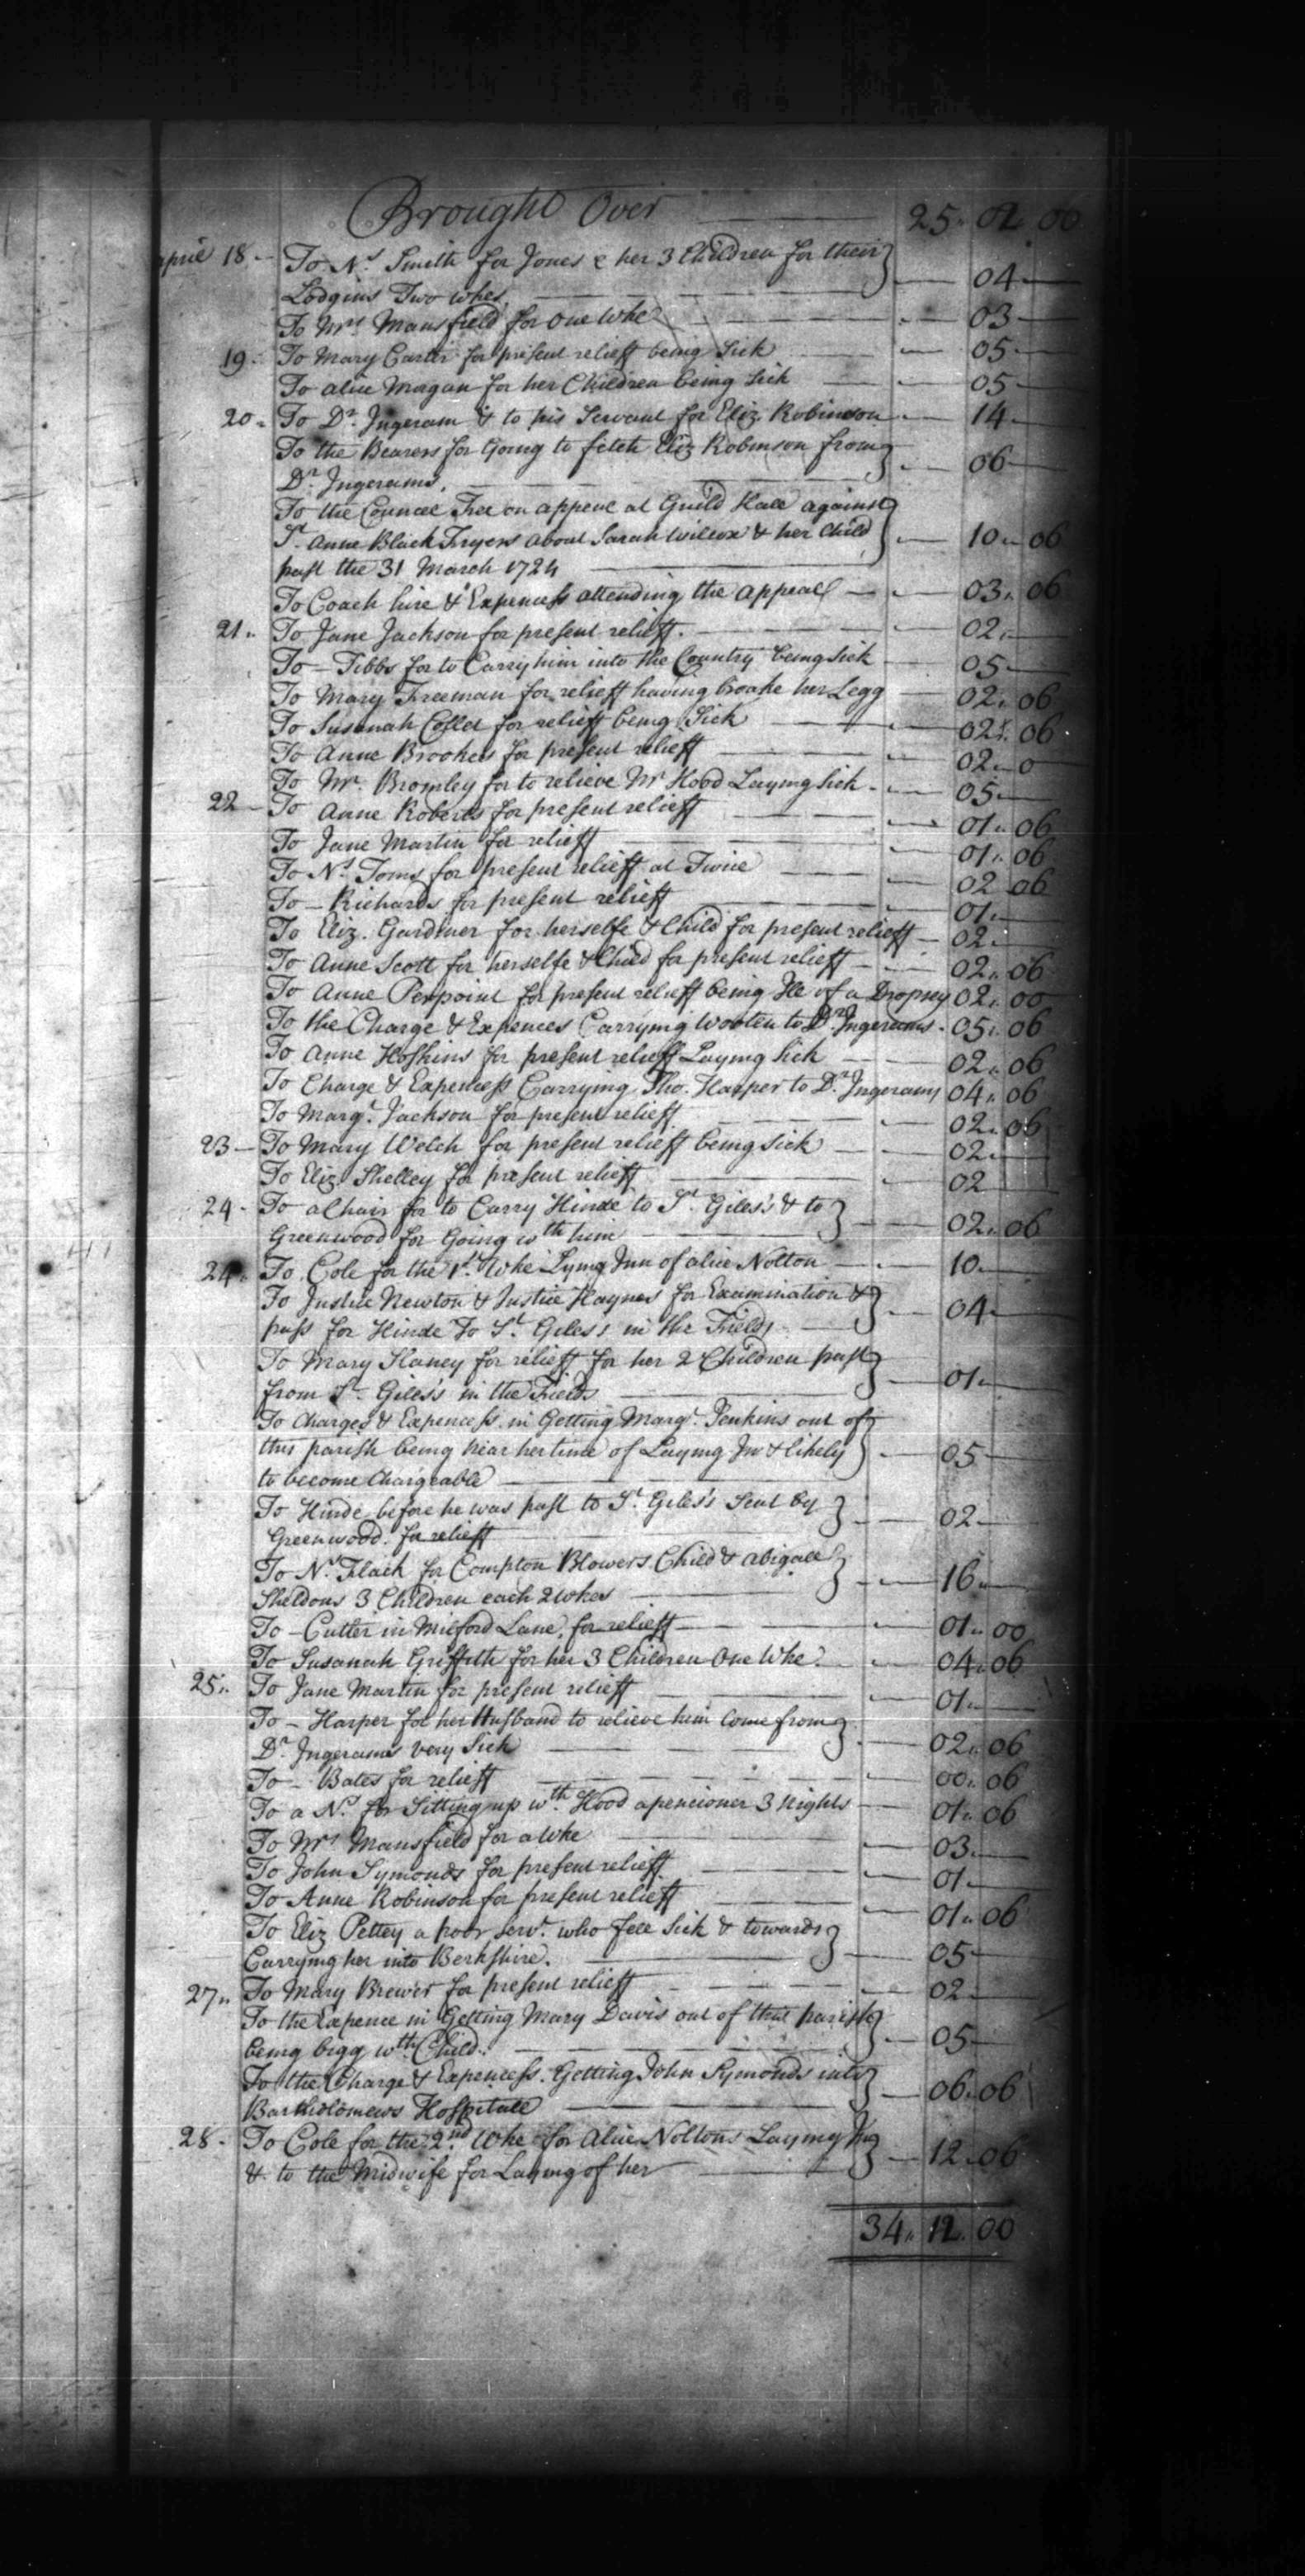 Brought Over — 25 " 02 " 00
Aprie 18 — To Ns. Smith for Jones & her 3 Children for their } — 04 —
Lodgins Two Whes. —
To Mrs. Mansfield for one Whe — 03 —
19 — To Mary Carter for present relieff being Sick — 05 —
To alice Magan for her Children being Sick — 05 —
20 " To Dr. Ingeram & to his Servant for Eliz. Robinson — 14 —
To the Bearers for Going to fetch Eliz Robinson from } — 06 —
Dr. Ingerams. —
To the Councel Fee on appeal at Guild Hall against }
St. Anne Black Fryers about Sarah Wilcox & her Child } — 10 " 06
past the 31 March 1724 —
To Coach hire & Expencess attending the appeall — 03 " 06
21 " To Jane Jackson for present relieff. — 02 " —
To — Tibbs for to Carry him into the Country being Sick — 05 —
To Mary Freeman for relieff having broake her Legg — 02 " 06
To Susanah Collet for relieff being Sick — 02 " 06
To Anne Brookes for present relieff — 02 " 0
To Mr. Bromley for to relieve Mr Hood Laying Sick — 05 —
22 — To Anne Roberts for present relieff — 01 " 06
To Jane Martin for relieff — 01 " 06
To Ns. Toms for present relieff at Twice — 02 06
To — Richards for present relieff — 01 " —
To Eliz. Gardiner for herselfe & Child for present relieff — 02 " —
To Anne Scott for herselfe & Child for present relieff — 02 " 06
To Anne Perpoint for present relieff being Ille of a Dropsey 02 " 00
To the Charge & Expences Carrying Wooten to Dr. Ingerams — 05 " 06
To Anne Hoskins for present relieff Laying Sick — 02 " 06
To Charge & Expencess Carrying Tho. Harper to Dr. Ingerams 04 " 06
To Margt. Jackson for present relieff — 02 " 06
23 — To Mary Welch for present relieff being Sick — 02 " —
To Eliz Shelley for present relieff — 02 —
24 — To a Chair for to Carry Hinde to St. Giles's & to } — 02 " 06
Greenwood for Going wth him —
24 " To Cole for the 1st. Whe Lying Inn of alice Nolton — 10 —
To Justice Newton & Justice Haynes for Examination & } — 04 —
pass for Hinde To St. Giles's in the Fields —
To Mary Haney for relieff for her 2 Children past } — 01 " —
from St. Giles's in the Fields —
To Charges & Expencess in Getting Margt. Jenkins out of }
this parish being near her time of Laying In & likely } — 05 —
to become Chargeable —
To Hinde before he was past to St. Giles's Sent by } — 02 —
Greenwood. for relieff —
To Ns. Flack for Compton Blowers Child & abigall } — 16 " —
Sheldons 3 Children each 2 Whes —
To — Cutler in Milford Lane, for relieff — 01 " 00
To Susanah Griffith for her 3 Children One Whe. — 04 " 06
25 " To Jane Martin for present relieff — 01 " —
To — Harper for her Husband to relieve him Come from } — 02 " 06
Dr. Ingerams very Sick —
To — Bates for relieff — 00 " 06
To a Ns. for Sitting up wth. Hood a pencioner 3 Nights — 01 " 06
To Mrs Mansfield for a Whe — 03 —
To John Symonds for present relieff — 01 —
To Anne Robinson for present relieff — 01 " 06
To Eliz Pettey a poor servt. who fell Sick & towards } — 05 —
Carrying her into Berkshire. —
27 " To Mary Brewer for present relieff — 02 —
To the Expence in Getting Mary Davis out of this parish } — 05 —
being bigg wth Child. —
To the Charge & Expencess. Getting John Symonds into } — 06 " 06
Bartholomews Hospitall —
28 — To Cole for the 2nd. Whe for Alice Noltons Laying In } — 12 " 06
& to the Midwife for Laying of her —
34 " 12 " 00